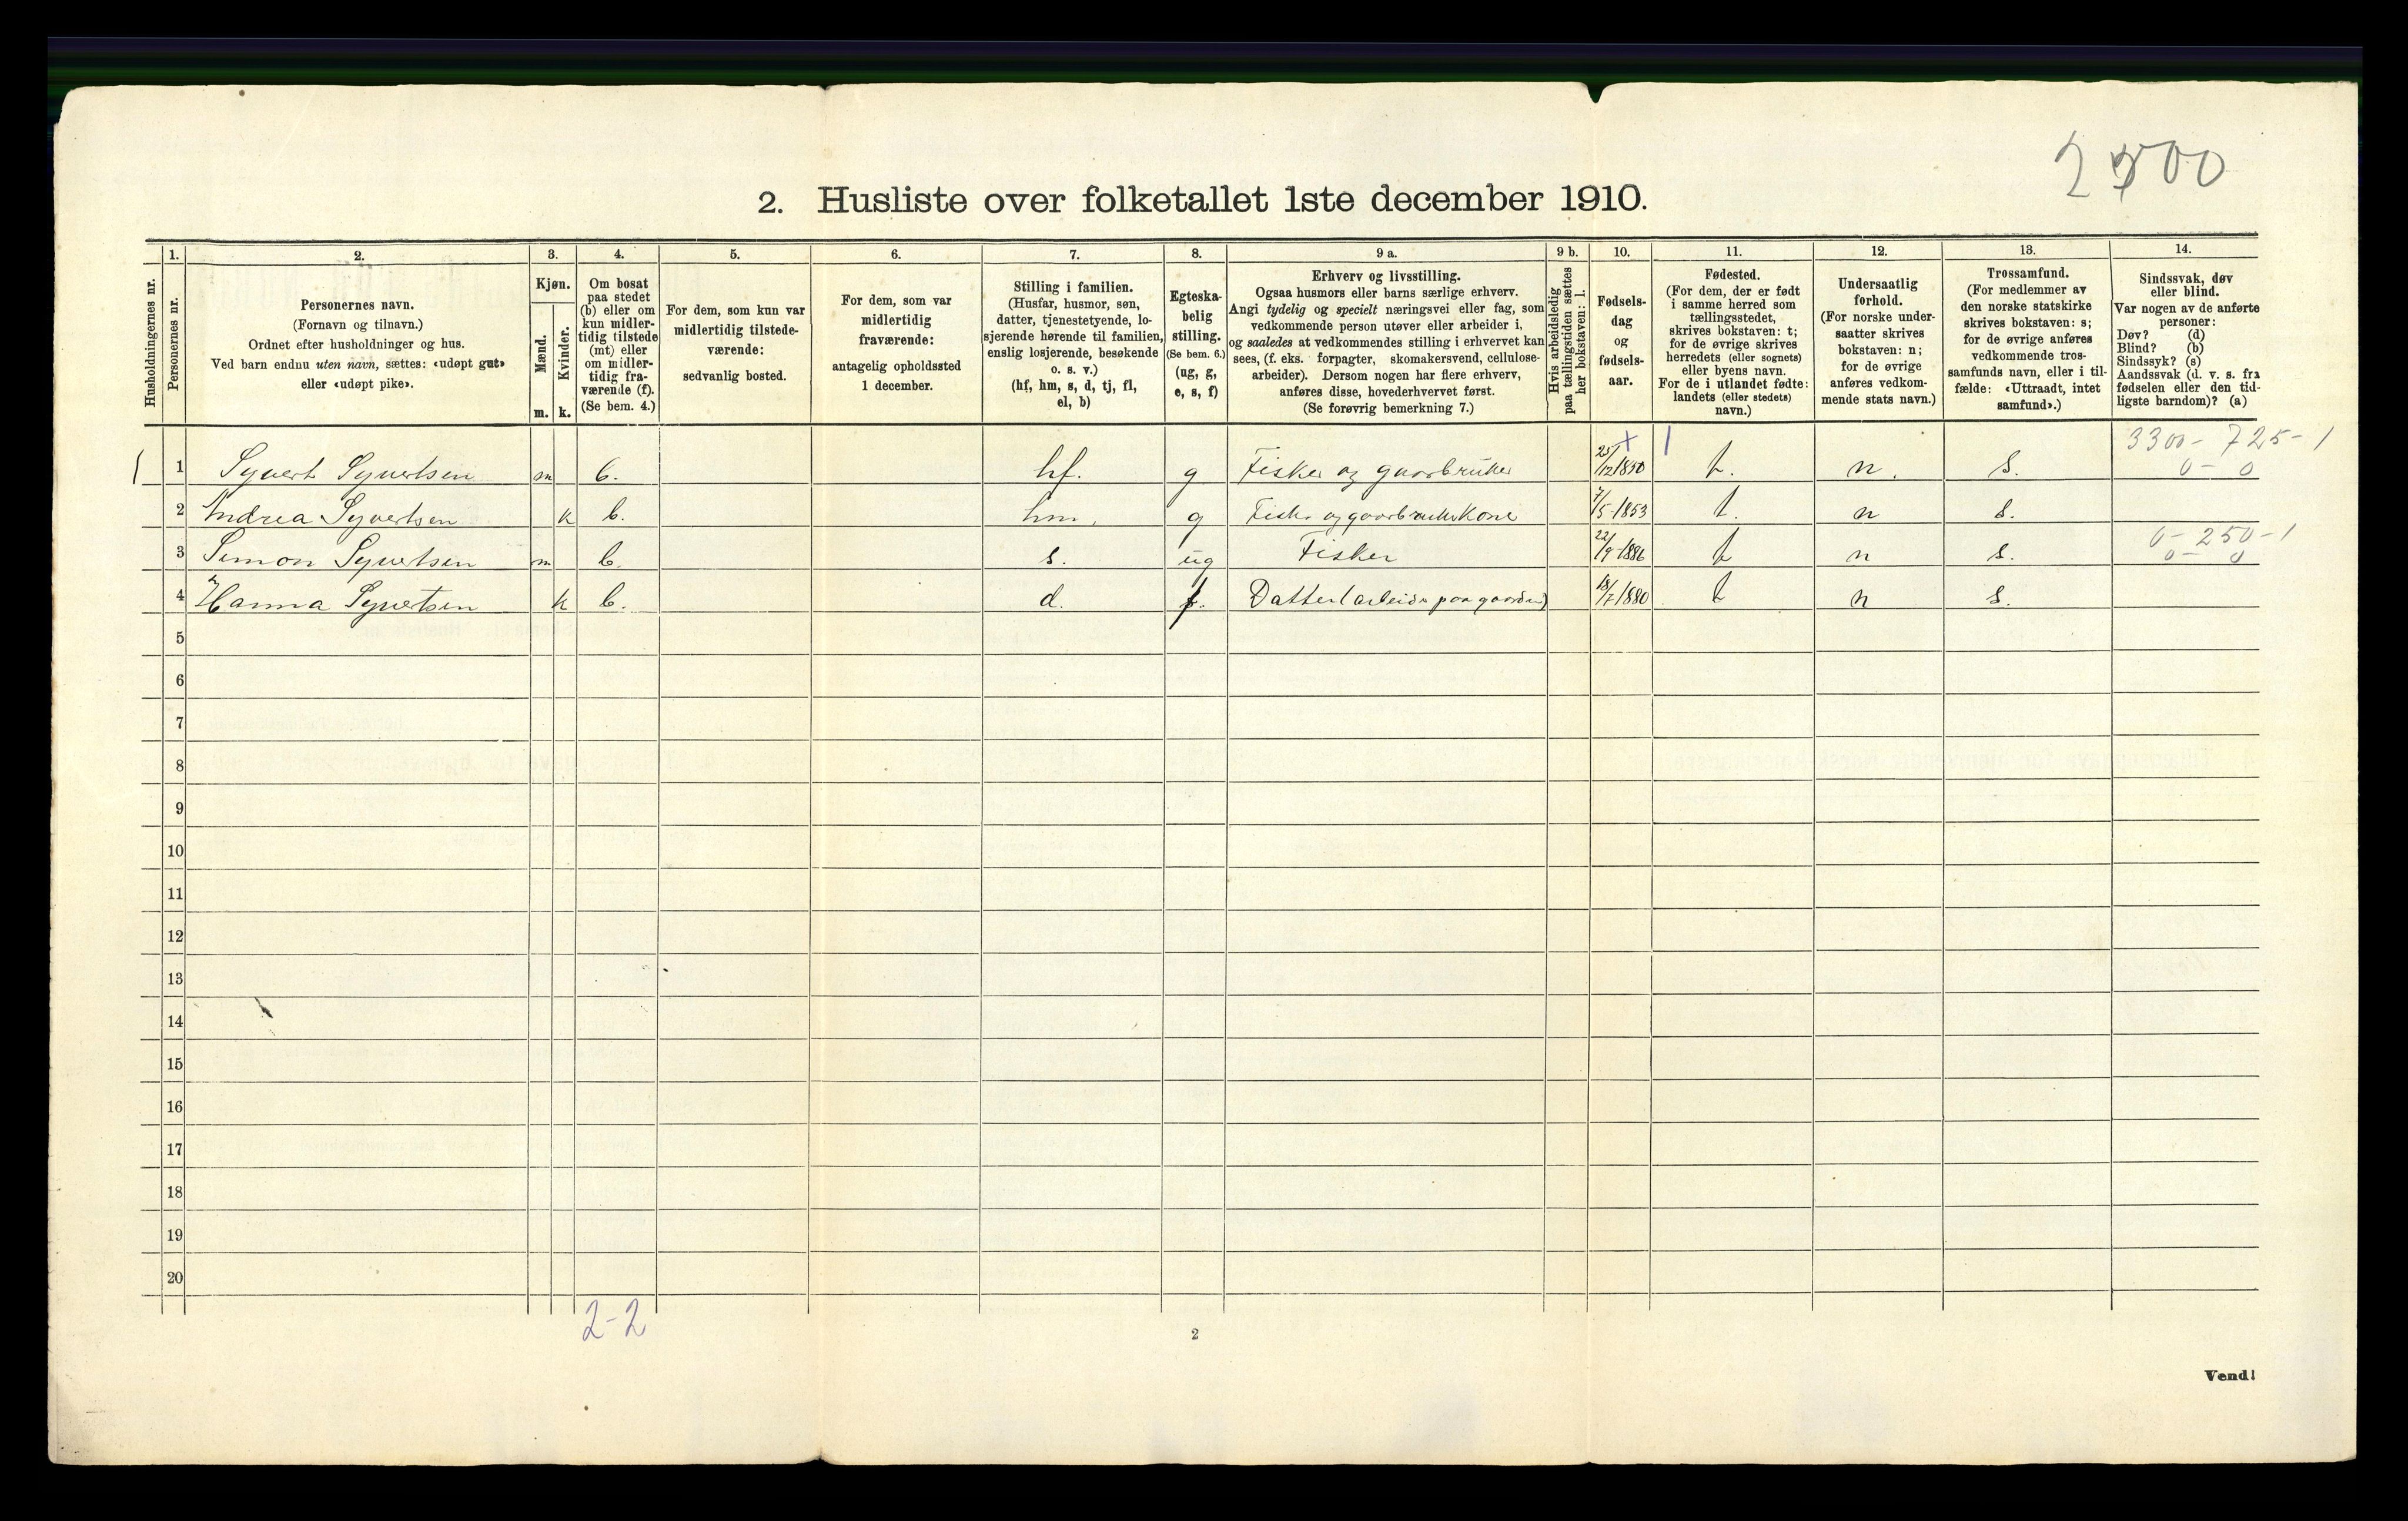 2500
2. Husliste over folketallet 1ste december 1910.
Husholdningernes nr.
1.
Personernes nr.
2.
Personernes navn.
(Fornavn og tilnavn.)
Ordnet efter husholdninger og hus.
Ved barn endnu uten navn, sættes: «udøpt gut»
eller «udøpt pike».
3.
Kjøn.
Mænd.
m.
Kvinder.
k.
4.
Om bosat
paa stedet
(b) eller om
kun midler-
tidig tilstede
(mt) eller
om midler-
tidig fra-
værende (f).
(Se bem. 4.)
5.
For dem, som kun var
midlertidig tilstede-
værende:
sedvanlig bosted.
6.
For dem, som var
midlertidig
fraværende:
antagelig opholdssted
1 december.
7.
Stilling i familien.
(Husfar, husmor, søn,
datter, tjenestetyende, lo-
sjerende hørende til familien,
enslig losjerende, besøkende
o. s. v.)
(hf, hm, s, d, tj, fl,
el, b)
8.
Egteska-
belig
stilling.
(Se bem. 6.)
(ug, g,
e, s, f)
9 a.
Erhverv og livsstilling.
Ogsaa husmors eller barns særlige erhverv.
Angi tydelig og specielt næringsvei eller fag, som
vedkommende person utøver eller arbeider i,
og saaledes at vedkommendes stilling i erhvervet kan
sees, (f. eks. forpagter, skomakersvend, cellulose-
arbeider). Dersom nogen har flere erhverv,
anføres disse, hovederhvervet først.
(Se forøvrig bemerkning 7.)
9 b.
Hvis arbeidsledig
paa tællingstiden sættes
her bokstaven: l.
10.
Fødsels-
dag
og
fødsels-
aar.
11.
Fødested.
(For dem, der er født
i samme herred som
tællingsstedet,
skrives bokstaven: t;
for de øvrige skrives
herredets (eller sognets)
eller byens navn.
For de i utlandet fødte:
landets (eller stedets)
navn.)
12.
Undersaatlig
forhold.
(For norske under-
saatter skrives
bokstaven: n;
for de øvrige
anføres vedkom-
mende stats navn.)
13.
Trossamfund.
(For medlemmer av
den norske statskirke
skrives bokstaven: s;
for de øvrige anføres
vedkommende tros-
samfunds navn, eller i til-
fælde: «Uttraadt, intet
samfund».)
14.
Sindssvak, døv
eller blind.
Var nogen av de anførte
personer:
Døv? (d)
Blind? (b)
Sindssyk? (s)
Aandssvak (d. v. s. fra
fødselen eller den tid-
ligste barndom)? (a)
x 1 3300 - 725 - 1
1 1 Syvert Syvertsen m b. hf. g Fisker og gaarbruker 25/12 1850 t. n. s. 0 - 0
2 Andrea Syvertsen k b. hm. g Fisker og gaarbrukerkone 7/5-1853 t. n s.
0 - 250 - 1
3 Simon Syvertsen m b. s. ug Fisker 22/9-1886 t n s. 0 - 0
4 Hanna Syvertsen k b. d. f. Datter (arbeider paa gaarden) 18/7 1880 t n s.
5
6
7
8
9
10
11
12
13
14
15
16
17
18
19
20
2-2
2
Vend!